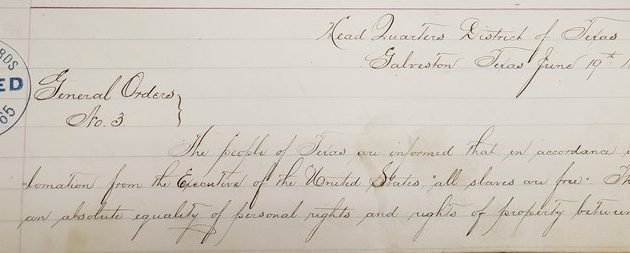 Head Quarters District of Texas
Galveston Texas June 19th 18
General Orders
No. 3
The people of Texas are informed that in accordance
lamation from the Executive of the United States "all slaves are free." Th
an absolute equality of personal rights and rights of property between
RDS
ED
65